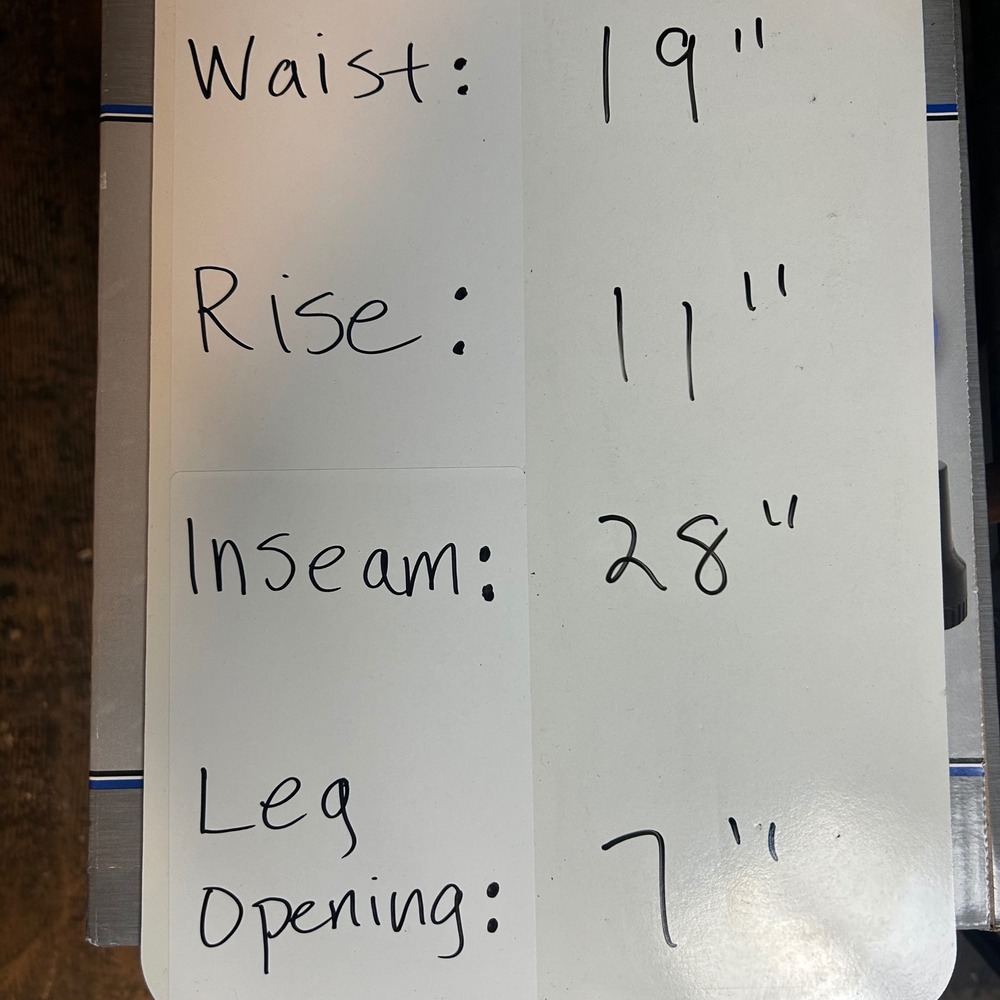 Waist: 19"
Rise: 11"
Inseam: 28"
Leg
Opening: 7"